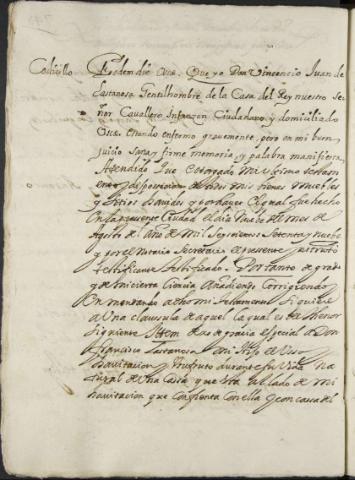 Codicillo Eodem die Osca. Que yo Don Vincencio Juan de
Lastanosa Gentilhombre de la Casa del Rey nuestro Se
ñor Cavallero Infanzon Ciudadano y domiciliado
Osca. estando enfermo gravemente, pero en mi buen
juicio sana y firme memoria, y palabra manifiesta,
Atendido que e otorgado mi ultimo testam
ento y disposicion de todos mis bienes muebles
y sitios havidos y por haver el qual fue hecho
en la presente Ciudad el dia nueve del mes de
Agosto del año de mil seyscientos setenta y nueve
y por el Notario Secretario el presente
testificante testificado. Por tanto de grado
y de mi cierta ciencia añadiendo Corrigiendo
enmendando a dicho mi testamento si quiere
a Una clausula de aquel la qual es del thenor
siguiente Ittem dexo de gracia especial a Don
Francisco Lastanosa mi Hijo el Uso
havitacion y Usufruto durante su Vida na
tural de Una Casa que esta al lado de mi
havitacion que confrenta con ella y con casa del